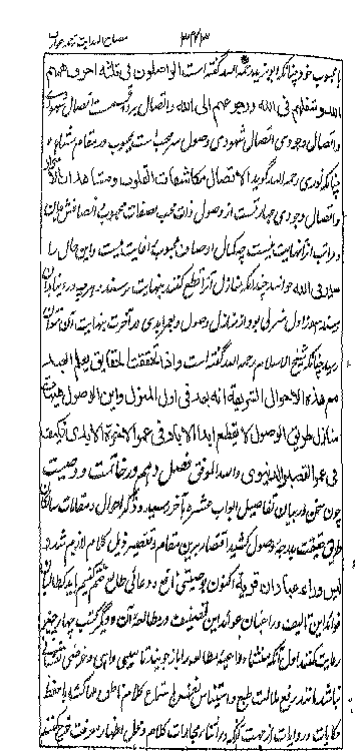 ۳۴۳
با محبوب خود چنانکه ابو یزید رحمه الله گفته است الواصلون فی ثلثة احرف همهم
لله و شغلهم فی الله و رجوعهم الی الله و اتصال بر دو قسمست اتصال شهودی
و اتصال وجودی اتصال شهودی وصول سر محب است بمحبوب در مقام مشاهده
چنانکه نوری رحمه الله گوید الاتصال مکاشفات القلوب و مشاهدات الاسرار
و اتصال وجودی عبارتست از وصول ذات محب بصفات محبوب و اتصافش بدان
و مراتب آنرا نهایت نیست چه کمال اوصاف محبوب را غایت نیست و این حال را
سیر فی الله خوانند چندانکه منازل آنرا قطع کنند بنهایت نرسند و هر چه در دنیا بدان
برسند هنوز اول منزلی بود از منازل وصول و بعمر ابدی در آخرت بنهایت آن نتوان
رسید چنانکه شیخ الاسلام رحمه الله گفته است و اذا تحققت الحقایق یعلم العبد
مع هذه الاحوال الشریفة انه بعد فی اول المنزل و این الوصول هیهات
منازل طریق الوصول لا یقطع ابد الاباد فی عمر الاخرة الابدی فکیف
فی عمر القصیر الدنیوی والله الموفق فصل دهم در خاتمت و وصیت
چون سخن در بیان تفاصیل ابواب عشره بآخر رسید و ذکر احوال و مقامات سالکان
طریق حقیقت بدرجه وصول کشید اقتصار برین مقام و تقصیر ذیل کلام لازم شد
لیس وراء عبادان قریة اکنون بوصیتی نافع و دعائی صالح ختم کنیم باید که طالبان
فواید این تالیف و راغبان عواید این تصنیف در مطالعه آن و دیگر کتب چهار چیز
رعایت کنند اول آنکه منشا داعیه مطالعه را باز جویند تا سببی واهی و غرضی نفسانی
نباشد مانند رفع ملالت طبع و استیناس نفس بسماع کلام و حفظ
حکایات و روایات از جهت آنکه در اثناء محاورات کلام و محل اظهار معرفت خرج کنند